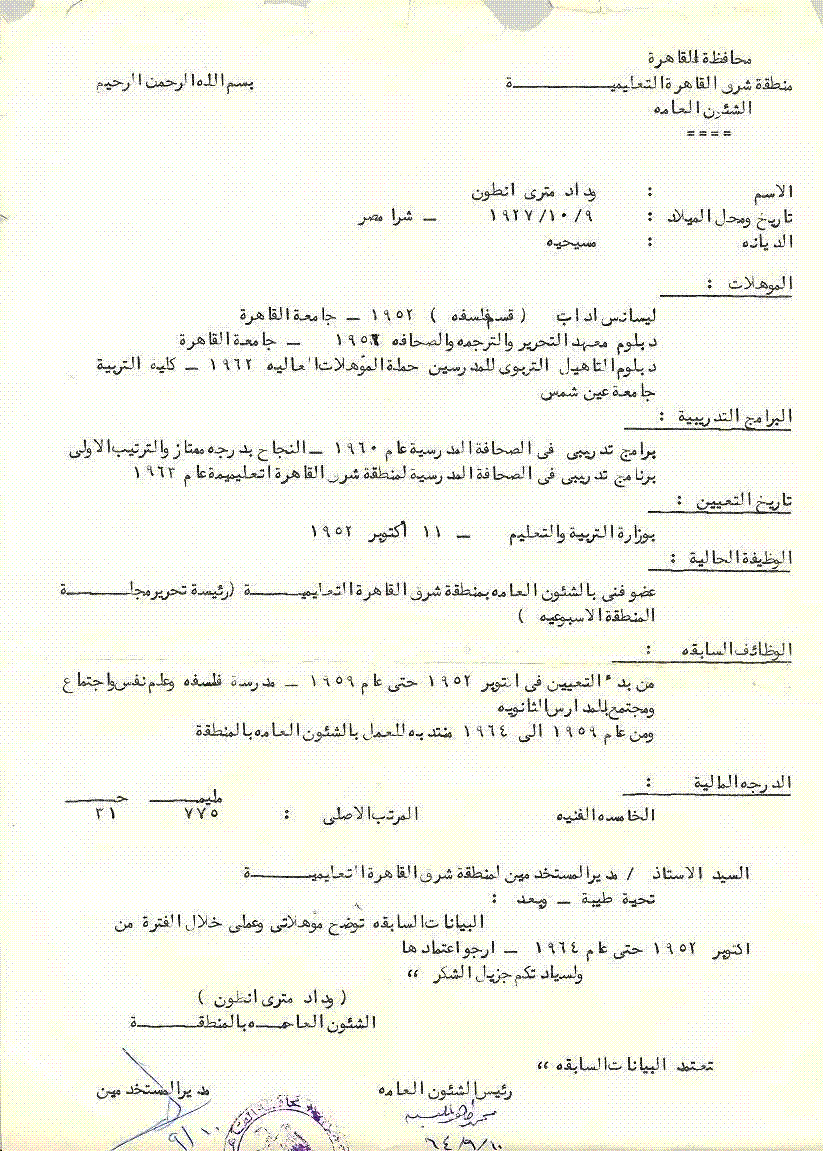 محافظة القاهرة
منطقة شرق القاهرة التعليميـــــــــة
بسم الله الرحمن الرحيم
الشئون العامه
====
الاسم : وداد مترى انطون
تاريخ ومحل الميلاد : ١٩٢٧/١٠/٩ ـ شبرا مصر
الديانه : مسيحيه
المؤهلات :
ليسانس اداب ( قسم فلسفه ) ١٩٥٢ ـ جامعة القاهرة
دبلوم معهد التحرير والترجمه والصحافه ـ جامعة القاهرة
دبلوم التاهيل التربوى للمدرسين حملة المؤهلات العاليه ١٩٦٢ ـ كلية التربية
جامعة عين شمس
البرامج التدريبية :
برامج تدريبى فى الصحافة المدرسية عام ١٩٦٠ ـ النجاح بدرجه ممتاز والترتيب الاولى
برنامج تدريبى فى الصحافة المدرسية لمنطقة شرق القاهرة التعليمية عام ١٩٦٣
تاريخ التعيين :
بوزارة التربية والتعليم ـ ١١ أكتوبر ١٩٥٢
الوظيفة الحالية :
عضو فنى بالشئون العامه بمنطقة شرق القاهرة التعليميــــــة (رئيسة تحرير مجلــــــة
المنطقة الاسبوعيه )
الوظائف السابقه :
من بدء التعيين فى اكتوبر ١٩٥٢ حتى عام ١٩٥٩ ـ مدرسة فلسفه وعلم نفس واجتماع
ومجتمع بالمدارس الثانويه
ومن عام ١٩٥٩ الى ١٩٦٤ منتدبه للعمل بالشئون العامه بالمنطقة
الدرجه المالية :
مليمـــ جـــ
الخامسه الفنيه المرتب الاصلى : ٧٧٥ ٣١
السيد الاستاذ / مدير المستخدمين لمنطقة شرق القاهرة التعليميــــــة
تحية طيبة ـ وبعد :
البيانات السابقه توضح مؤهلاتى وعملى خلال الفترة من
اكتوبر ١٩٥٢ حتى عام ١٩٦٤ ـ ارجو اعتمادها
ولسيادتكم جزيل الشكر ،،
( وداد مترى انطون )
الشئون العامـــه بالمنطقـــــة
تعتمد البيانات السابقه ،،
رئيس الشئون العامه
مدير المستخدمين
٦٤/٩/١٠
٩/١٠